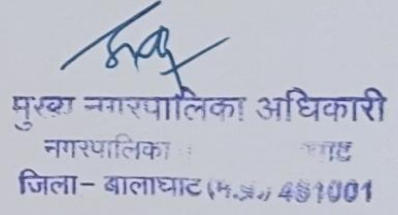 मुख्य नगरपालिका अधिकारी
नगरपालिका
जिला- बालाघाट (म.प्र.) 481001